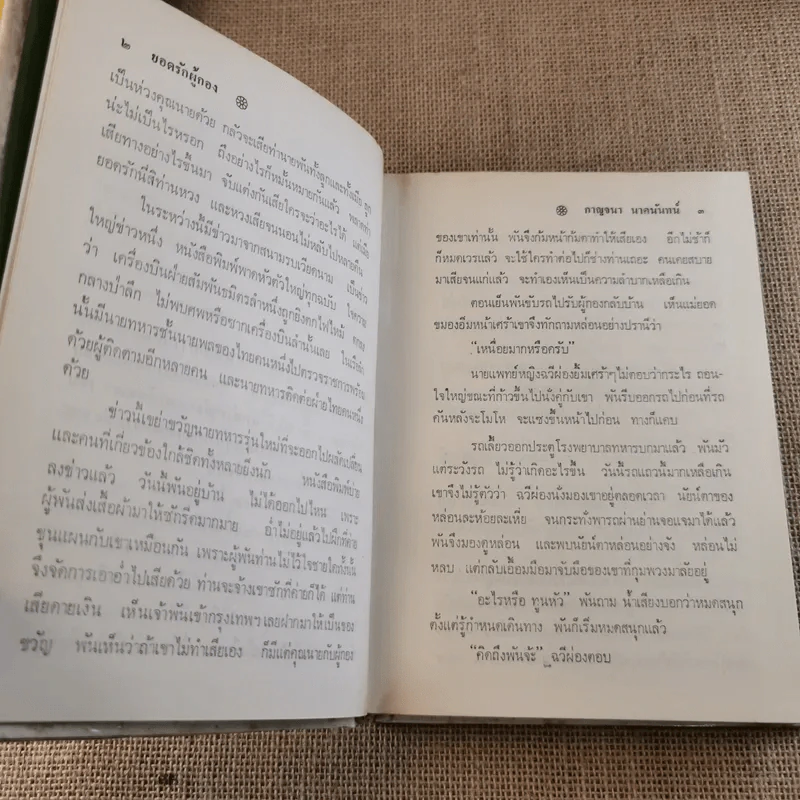 ๒ ยอดรักผู้กอง
เป็นห่วงคุณนายด้วย กลัวจะเสียท่านายพันทั้งลูกและทั้งเมีย ลูก
น่ะไม่เป็นไรหรอก ถึงอย่างไรก็หมั้นหมายกันแล้ว พลาดท่า
เสียทางอย่างไรขึ้นมา จับแต่งกันเสียใครจะว่าอะไรได้ แต่เมีย
ยอดรักนี่สิท่านหวง และหวงเสียจนนอนไม่หลับไปหลายคืน
ในระหว่างนี้มีข่าวมาจากสนามรบเวียดนาม เป็นข่าว
ใหญ่ข่าวหนึ่ง หนังสือพิมพ์พาดหัวตัวใหญ่ทุกฉบับ ใจความ
ว่า เครื่องบินฝ่ายสัมพันธมิตรลำหนึ่งถูกยิงตกไฟไหม้ ตกลง
กลางป่าลึก ไม่พบศพหรือซากเครื่องบินลำนั้นเลย ในเรือบิน
นั้นมีนายทหารชั้นนายพลของไทยคนหนึ่งไปตรวจราชการพร้อม
ด้วยผู้ติดตามอีกหลายคน และนายทหารติดต่อฝ่ายไทยคนหนึ่ง
ด้วย
ข่าวนี้เขย่าขวัญนายทหารรุ่นใหม่ที่จะออกไปผลัดเปลี่ยน
และคนที่เกี่ยวข้องใกล้ชิดทั้งหลายยิ่งนัก หนังสือพิมพ์บ่าย
ลงข่าวแล้ว วันนี้พันอยู่บ้าน ไม่ได้ออกไปไหน เพราะ
ผู้พันส่งเสื้อผ้ามาให้ซักรีดมากมาย อ่ำไม่อยู่แล้วไปฝึกที่ค่าย
ขุนแผนกับเขาเหมือนกัน เพราะผู้พันท่านไม่ไว้ใจชายใดทั้งนั้น
จึงจัดการเอาอ่ำไปเสียด้วย ท่านจะจ้างเขาซักที่ค่ายก็ได้ แต่ท่าน
เสียดายเงิน เห็นเจ้าพันเข้ากรุงเทพฯ เลยฝากมาให้เป็นของ
ขวัญ พันเห็นว่าถ้าเขาไม่ทำเสียเอง ก็มีแต่คุณนายกับผู้กอง
กาญจนา นาคนันทน์ ๓
ของเขาเท่านั้น พันจึงก้มหน้าก้มตาทำให้เสียเอง อีกไม่ช้าก็
ก็หมดเวรแล้ว จะใช้ใครทำต่อไปก็ช่างท่านเถอะ คนเคยสบาย
มาเสียจนแก่แล้ว จะทำเองเห็นเป็นความลำบากเหลือเกิน
ตอนเย็นพันขับรถไปรับผู้กองกลับบ้าน เห็นแม่ยอด
ขมองอิ่มหน้าเศร้าเขาจึงทักถามหล่อนอย่างปรานีว่า
“เหนื่อยมากหรือครับ”
นายแพทย์หญิงฉวีผ่องยิ้มเศร้าๆไม่ตอบว่ากระไร ถอน-
ใจใหญ่ขณะที่ก้าวขึ้นไปนั่งคู่กับเขา พันรีบออกรถไปก่อนที่รถ
คันหลังจะโมโห จะแซงขึ้นหน้าไปก่อน ทางก็แคบ
รถเลี้ยวออกประตูโรงพยาบาลทหารบกมาแล้ว พันมัว
แต่ระวังรถ ไม่รู้ว่าเกิดอะไรขึ้น วันนี้รถแถวนี้มากเหลือเกิน
เขาจึงไม่รู้ตัวว่า ฉวีผ่องนั่งมองเขาอยู่ตลอดเวลา นัยน์ตาของ
หล่อนละห้อยละเหี่ย จนกระทั่งพารถผ่านย่านจอแจมาได้แล้ว
พันจึงมองดูหล่อน และพบนัยน์ตาหล่อนอย่างจัง หล่อนไม่
หลบ แต่กลับเอื้อมมือมาจับมือของเขาที่กุมพวงมาลัยอยู่
“อะไรหรือ ทูนหัว” พันถาม น้ำเสียงบอกว่าหมดสนุก
ตั้งแต่รู้กำหนดเดินทาง พันก็เริ่มหมดสนุกแล้ว
“คิดถึงพันจ้ะ” ฉวีผ่องตอบ